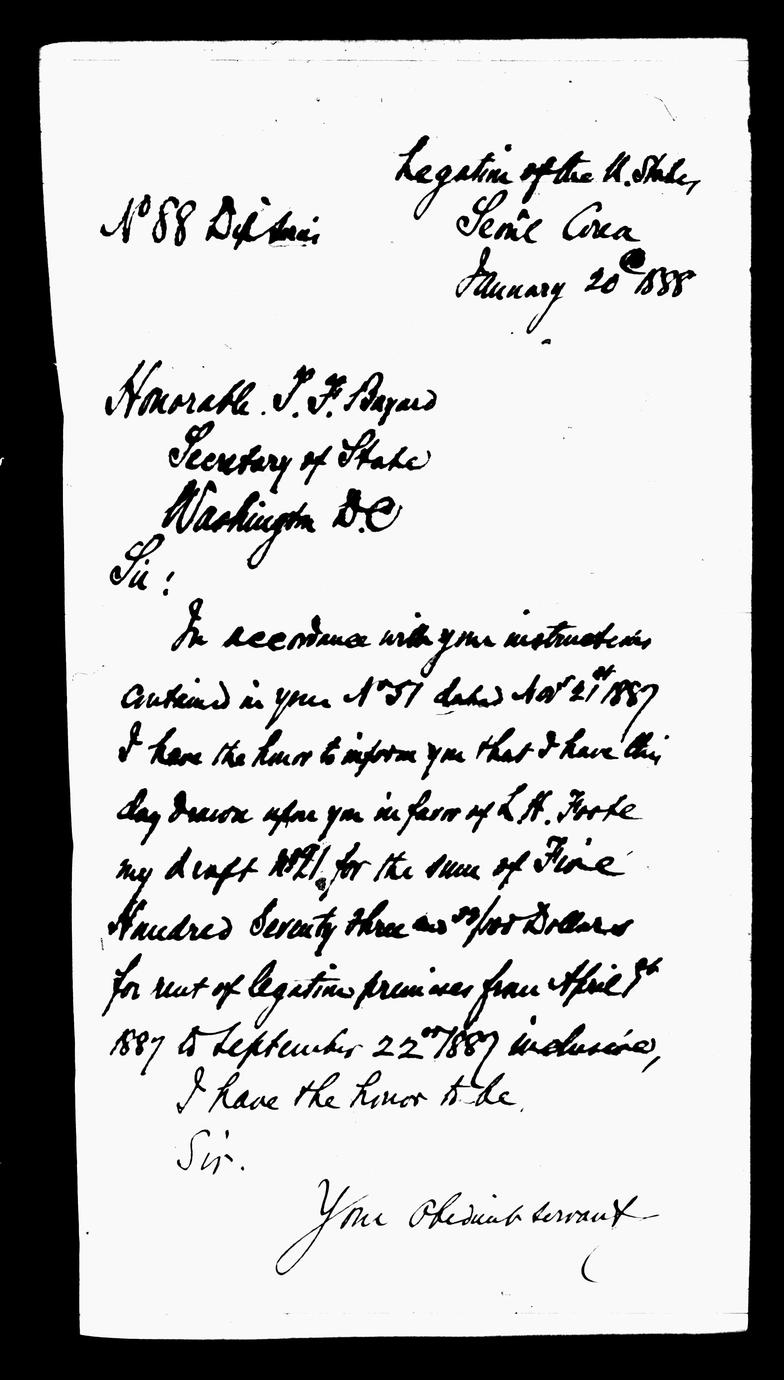 Legation of the U. States,
Nº 88 Dip Series
Seoul Corea
January 20 1888
Honorable T. F. Bayard
Secretary of State
Washington D.C
Sir :
In accordance with your instructions
contained in your Nº 51 dated Novr 21st 1887
I have the honor to inform you that I have this
day drawn upon you in favor of L. H. Foote
my draft for the sum of Five
Hundred Seventy three and /100 Dollars
for rent of legation premises from April
1887 to September 22nd 1887 inclusive,
I have the honor to be.
Sir.
Your obedient servant